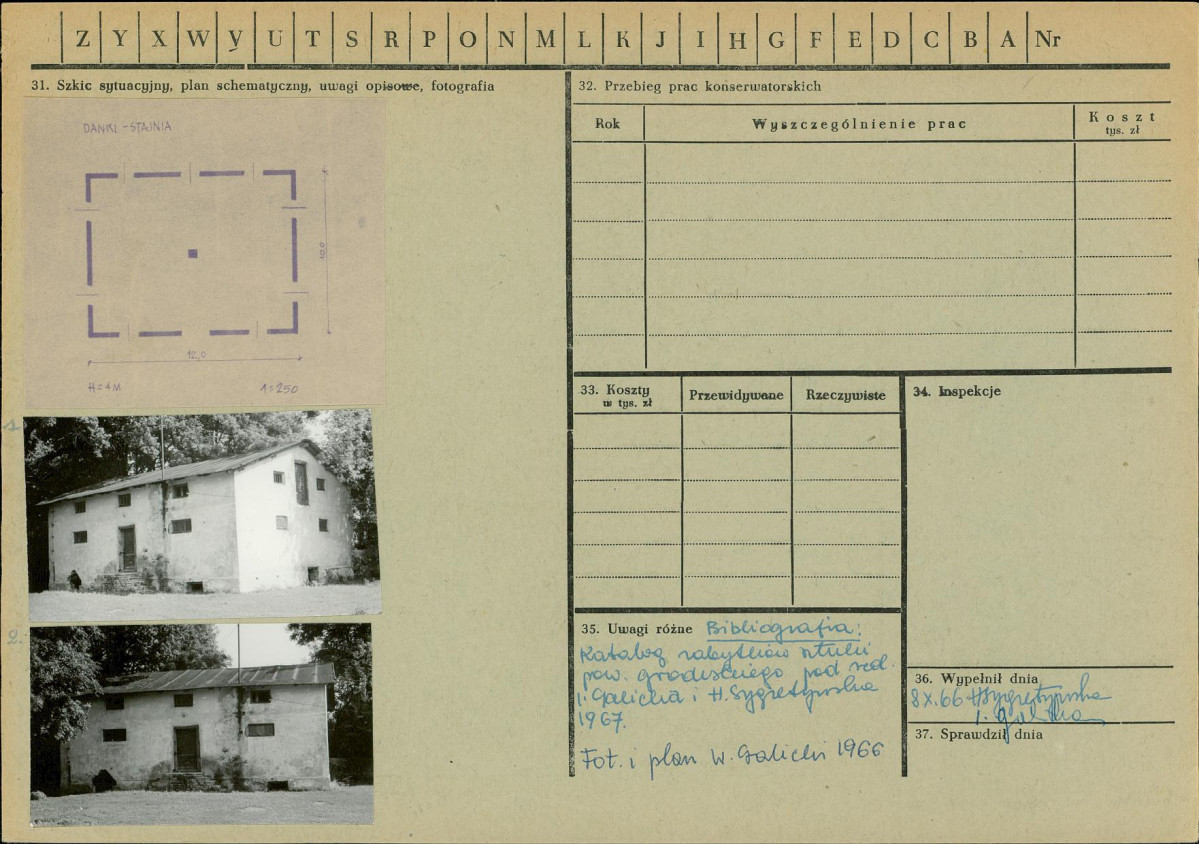 Z Y X W y U T S R P O N M L K J I H G F E D C B A Nr
31. Szkic sytuacyjny, plan schematyczny, uwagi opisowe, fotografia
DANKI - STAJNIA
10,0
12,0
H = 4 M
1 = 250
1.
2.
32. Przebieg prac konserwatorskich
Rok
Wyszczególnienie prac
Koszt
tys. zł
33. Koszty
w tys. zł
Przewidywane
Rzeczywiste
34. Inspekcje
35. Uwagi różne Bibliografia:
Katalog zabytków sztuki
pow. grodziskiego pod red.
I. Galicka i H. Sygietyńska
1967.
Fot. i plan W. Galicki 1966
36. Wypełnił dnia
8 X. 66 H Sygietyńska
I. Galicka
37. Sprawdził dnia